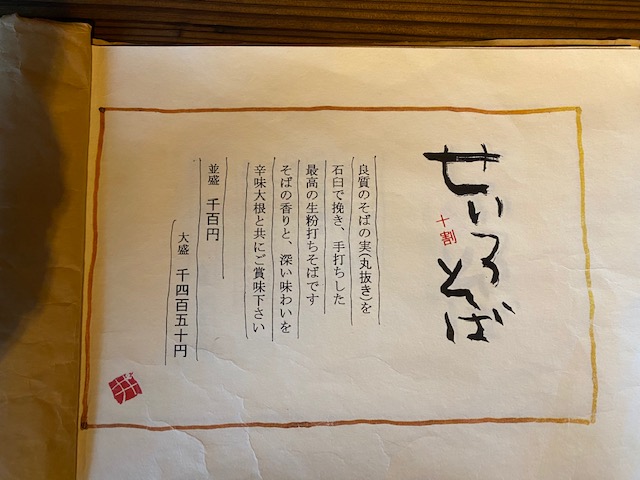 せいろそば
十割
良質のそばの実(丸抜き)を
石臼で挽き、手打ちした
最高の生粉打ちそばです
そばの香りと、深い味わいを
辛味大根と共にご賞味下さい
並盛 千百円
大盛 千四百五十円